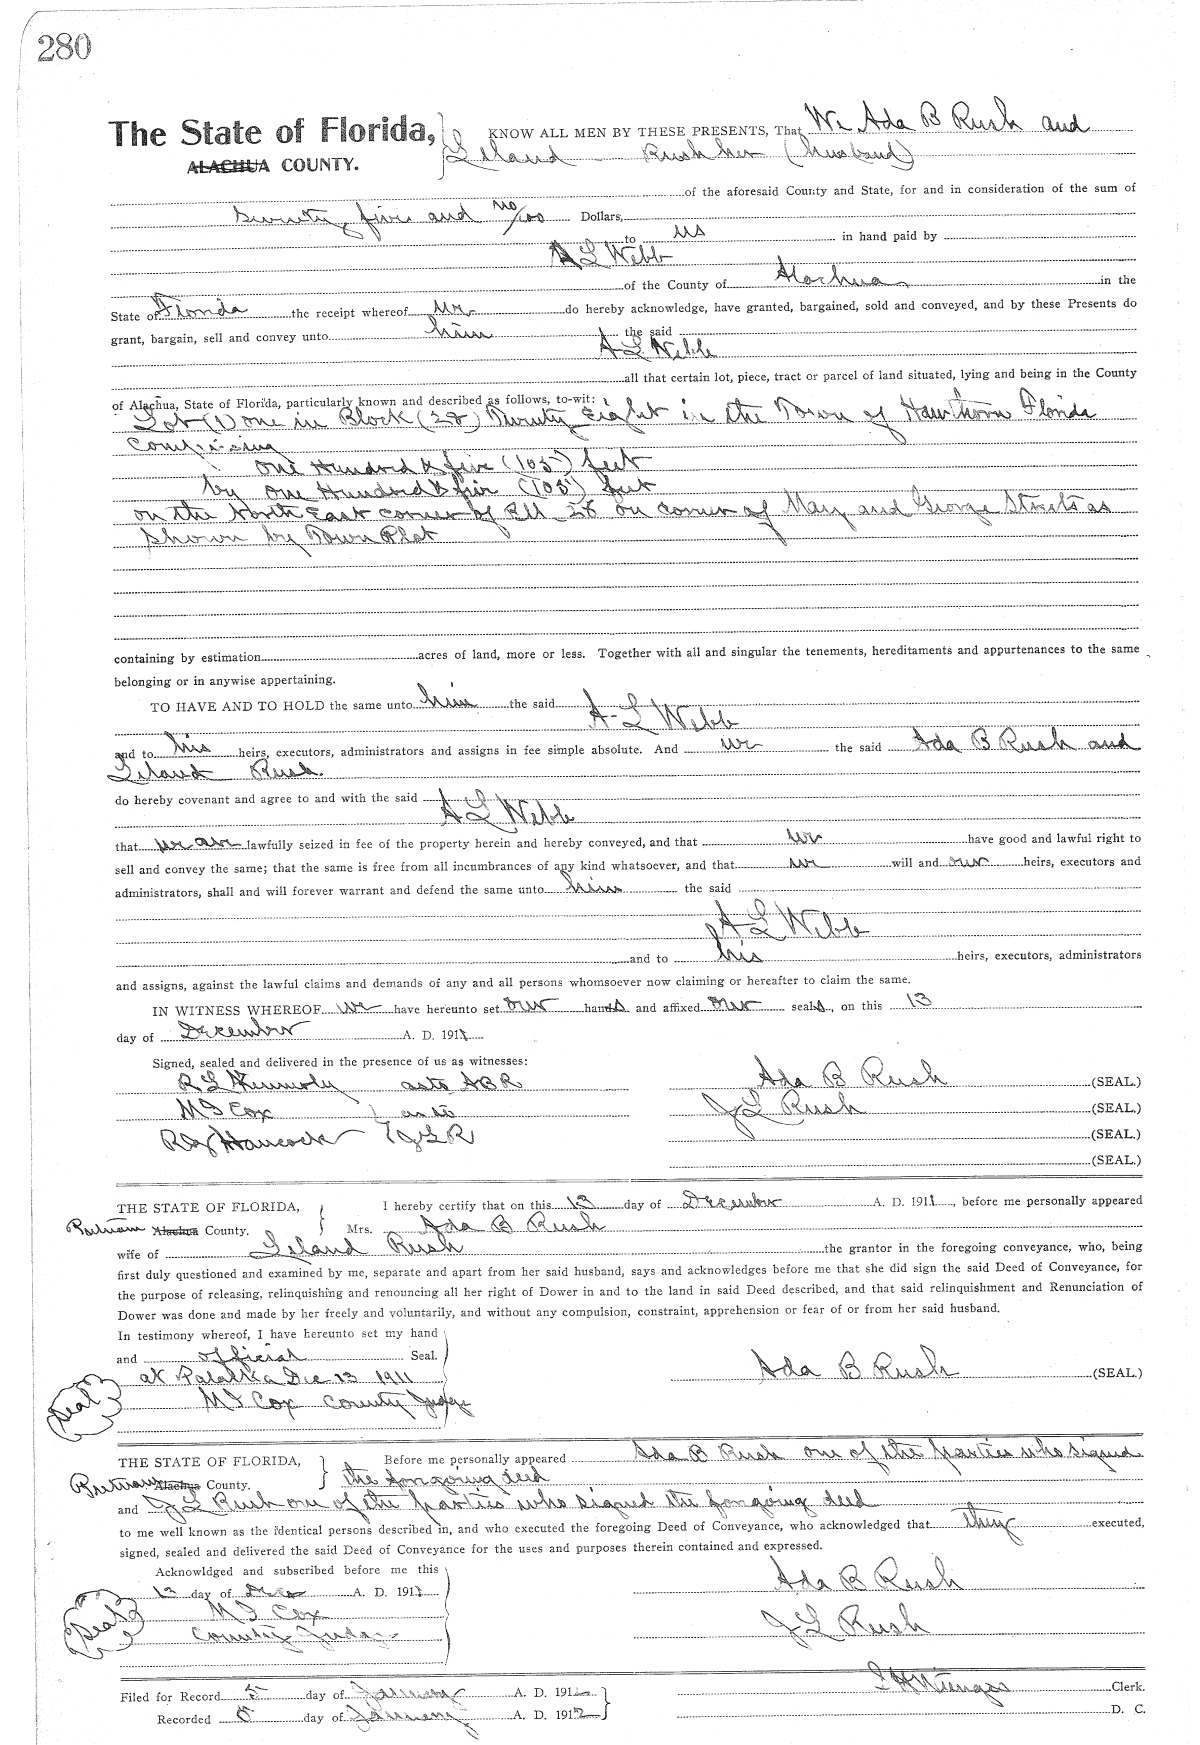 280
The State of Florida, KNOW ALL MEN BY THESE PRESENTS, That We Ada B Rush and
ALACHUA COUNTY. Leland Rush her (husband)
of the aforesaid County and State, for and in consideration of the sum of
Seventy five and no/100 Dollars,
to us in hand paid by
A L Webb
of the County of Alachua in the
State of Florida the receipt whereof we do hereby acknowledge, have granted, bargained, sold and conveyed, and by these Presents do
grant, bargain, sell and convey unto him the said
A L Webb
all that certain lot, piece, tract or parcel of land situated, lying and being in the County
of Alachua, State of Florida, particularly known and described as follows, to-wit:
Lot (1) one in Block (28) Twenty Eight in the Town of Hawthorn Florida
Comprising
one Hundred & five (105) feet
by one Hundred & five (105) feet
on the North East corner of Blk 28 on corner of May and George Streets as
shown by Town Plat
containing by estimation acres of land, more or less. Together with all and singular the tenements, hereditaments and appurtenances to the same
belonging or in anywise appertaining.
TO HAVE AND TO HOLD the same unto him the said
A L Webb
and to his heirs, executors, administrators and assigns in fee simple absolute. And we the said Ada B Rush and
Leland Rush.
do hereby covenant and agree to and with the said
A L Webb
that we are lawfully seized in fee of the property herein and hereby conveyed, and that we have good and lawful right to
sell and convey the same; that the same is free from all incumbrances of any kind whatsoever, and that we will and our heirs, executors and
administrators, shall and will forever warrant and defend the same unto him the said
A L Webb
and to his heirs, executors, administrators
and assigns, against the lawful claims and demands of any and all persons whomsoever now claiming or hereafter to claim the same.
IN WITNESS WHEREOF we have hereunto set our hands and affixed our seals, on this 13
day of December A. D. 1911
Signed, sealed and delivered in the presence of us as witnesses:
R L as to A B R Ada B Rush (SEAL.)
M I Cox as to J L Rush (SEAL.)
Hancock J L R (SEAL.)
(SEAL.)
THE STATE OF FLORIDA, I hereby certify that on this 13 day of December A. D. 1911, before me personally appeared
Putnam Alachua County. Mrs. Ada B Rush
wife of Leland Rush the grantor in the foregoing conveyance, who, being
first duly questioned and examined by me, separate and apart from her said husband, says and acknowledges before me that she did sign the said Deed of Conveyance, for
the purpose of releasing, relinquishing and renouncing all her right of Dower in and to the land in said Deed described, and that said relinquishment and Renunciation of
Dower was done and made by her freely and voluntarily, and without any compulsion, constraint, apprehension or fear of or from her said husband.
In testimony whereof, I have hereunto set my hand
and official Seal.
at Palatka Dec 13 1911 Ada B Rush (SEAL.)
Seal M I Cox County Judge
THE STATE OF FLORIDA, Before me personally appeared Ada B Rush one of the parties who signed
Putnam Alachua County. the forgoing deed
and J L Rush one of the parties who signed the forgoing deed
to me well known as the identical persons described in, and who executed the foregoing Deed of Conveyance, who acknowledged that they executed,
signed, sealed and delivered the said Deed of Conveyance for the uses and purposes therein contained and expressed.
Acknowldged and subscribed before me this
13 day of Dec A. D. 1911 Ada B Rush
Seal M I Cox
County Judge J L Rush
Filed for Record 5 day of January A. D. 1912 Clerk.
Recorded 5 day of January A. D. 1912 D. C.